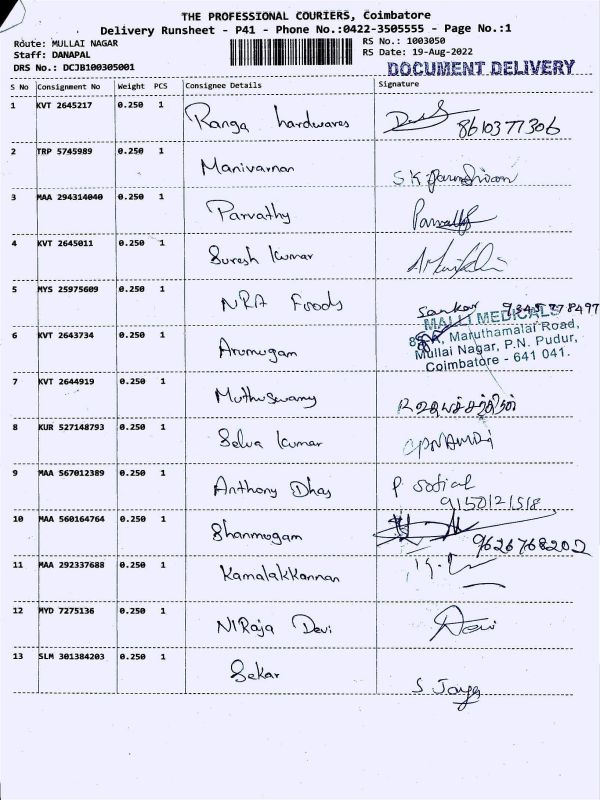 THE PROFESSIONAL COURIERS, Coimbatore
Delivery Runsheet - P41 - Phone No.:0422-3505555 - Page No.:1
Route: MULLAI NAGAR
RS No.: 1003050
Staff: DANAPAL
RS Date: 19-Aug-2022
DRS No.: DCJB100305001
DOCUMENT DELIVERY
S No Consignment No Weight PCS Consignee Details Signature
1 KVT 2645217 0.250 1 Ranga hardwares 8610377306
2 TRP 5745989 0.250 1 Manivarnan S.K.
3 MAA 294314040 0.250 1 Parvathy Parvathy
4 KVT 2645011 0.250 1 Suresh Kumar
5 MYS 25975609 0.250 1 NRA Foods Sankar
MALLI MEDICALS
Maruthamalai Road,
6 KVT 2643734 0.250 1 Arumugam
Mullai Nagar, P.N. Pudur,
Coimbatore - 641 041.
7 KVT 2644919 0.250 1 Muthuswamy
8 KUR 527148793 0.250 1 Selva Kumar
9 MAA 567012389 0.250 1 Anthony Dhas P
9150121518
10 MAA 560164764 0.250 1 Shanmugam
9626768202
11 MAA 292337688 0.250 1 Kamalakkannan
12 MYD 7275136 0.250 1 NIRaja Devi Devi
13 SLM 301384203 0.250 1 Sekar S